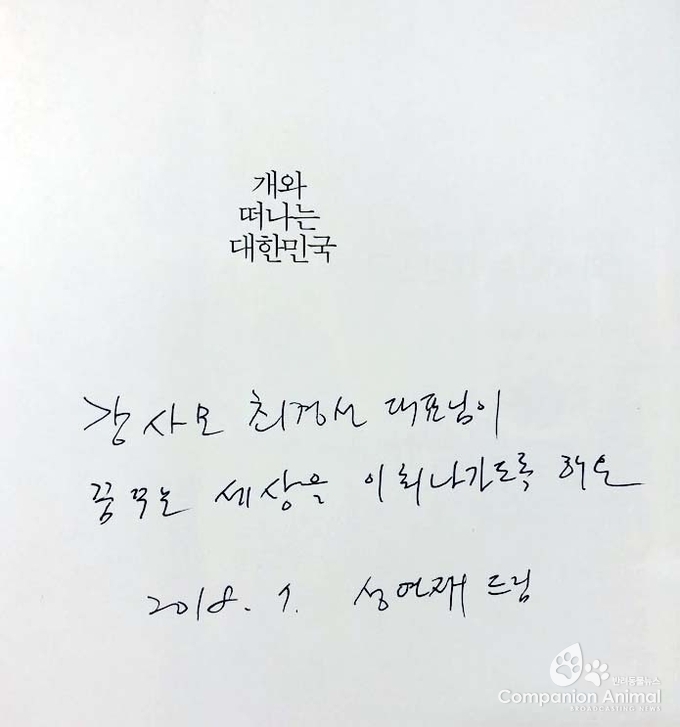 개와
떠나는
대한민국
강사모 최경선 대표님이
꿈꾸는 세상을 이뤄나가도록 해요
2018. 1. 성연재 드림
반려동물뉴스
Companion Animal
BROADCASTING NEWS